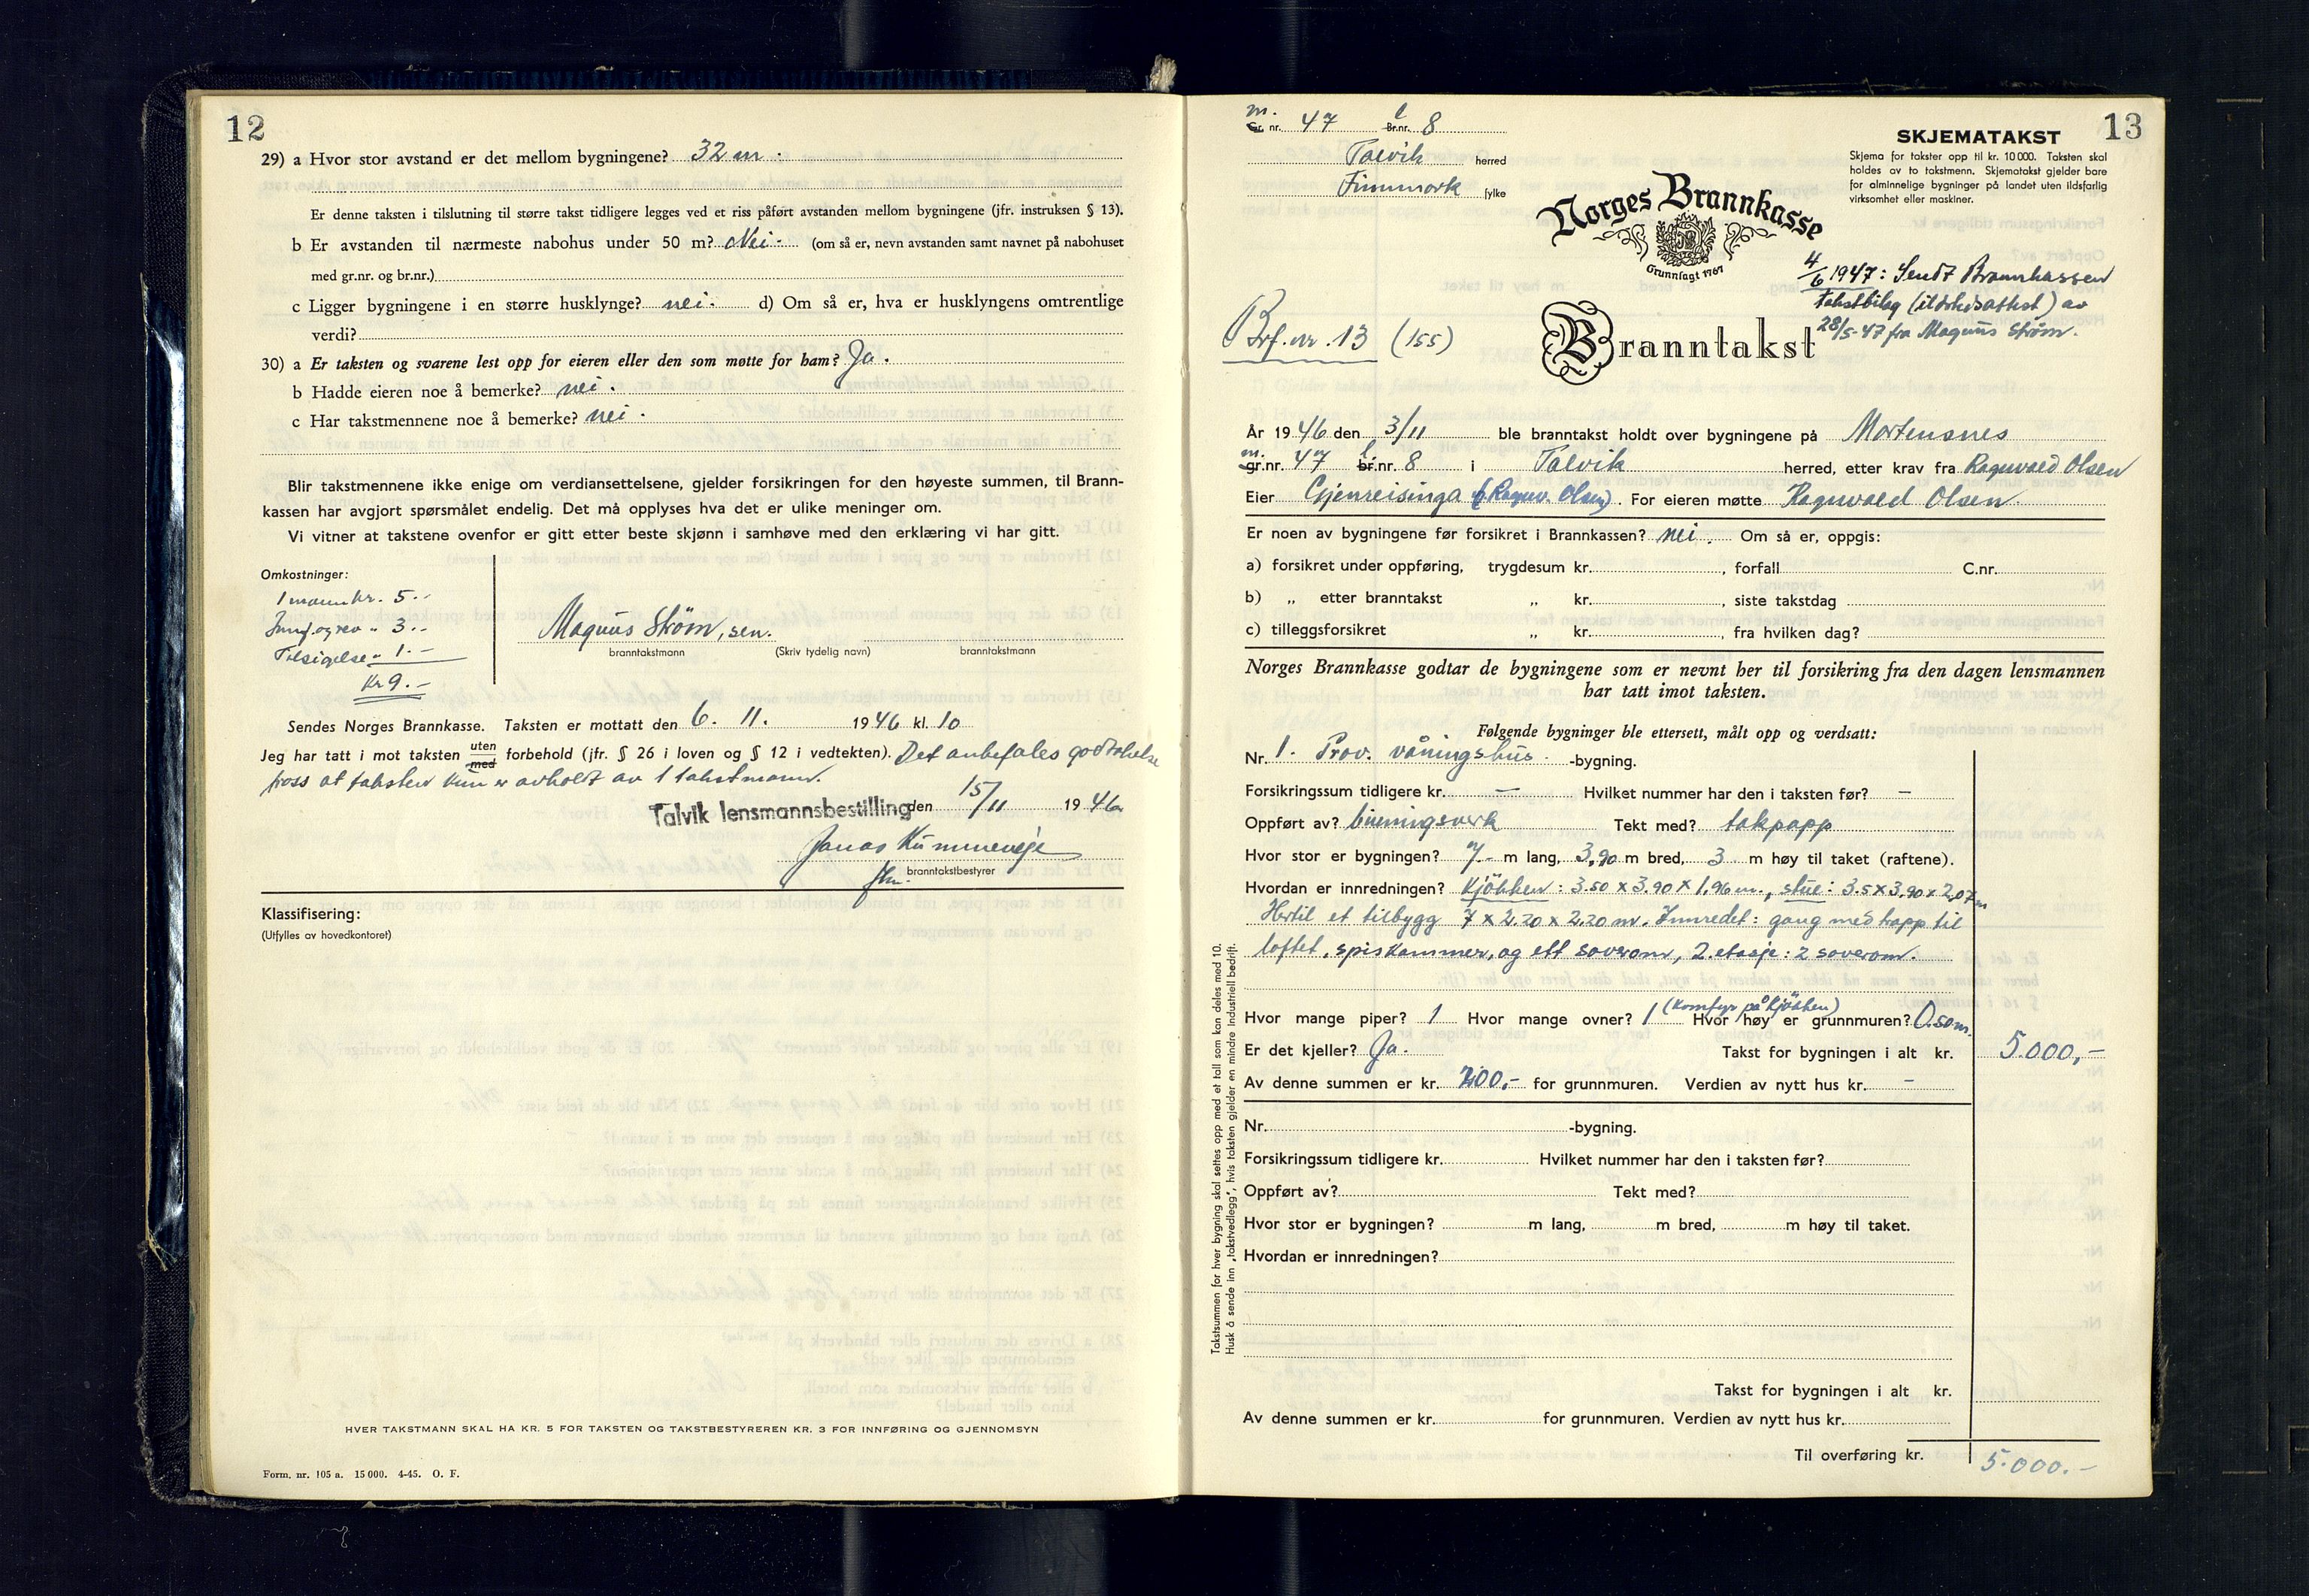 12
29) a Hvor stor avstand er det mellom bygningene? 32 m.
Er denne taksten i tilslutning til større takst tidligere legges ved et riss påført avstanden mellom bygningene (jfr. instruksen § 13).
b Er avstanden til nærmeste nabohus under 50 m? Nei. (om så er, nevn avstanden samt navnet på nabohuset
med gr.nr. og br.nr.)
c Ligger bygningene i en større husklynge? nei. d) Om så er, hva er husklyngens omtrentlige
verdi?
30) a Er taksten og svarene lest opp for eieren eller den som møtte for ham? Ja.
b Hadde eieren noe å bemerke? nei.
c Har takstmennene noe å bemerke? nei.
Blir takstmennene ikke enige om verdiansettelsene, gjelder forsikringen for den høyeste summen, til Brann-
kassen har avgjort spørsmålet endelig. Det må opplyses hva det er ulike meninger om.
Vi vitner at takstene ovenfor er gitt etter beste skjønn i samhøve med den erklæring vi har gitt.
Omkostninger:
1 mann kr. 5.-
Innf. og rev " 3.-
Tilsigelse " 1.-
Kr 9.-
Magnus Strøm, sen.
branntakstmann (Skriv tydelig navn) branntakstmann
Sendes Norges Brannkasse. Taksten er mottatt den 6. 11. 1946 kl. 10
Jeg har tatt i mot taksten uten med forbehold (jfr. § 26 i loven og § 12 i vedtekten). Det anbefales godtakelse
tross at taksten kun er avholdt av 1 takstmann.
Talvik lensmannsbestilling den 15/11 1946
Jonas Kummeneje
fm. branntakstbestyrer
Klassifisering:
(Utfylles av hovedkontoret)
HVER TAKSTMANN SKAL HA KR. 5 FOR TAKSTEN OG TAKSTBESTYREREN KR. 3 FOR INNFØRING OG GJENNOMSYN
Form. nr. 105 a. 15 000. 4-45. O. F.
13
m. Gr. nr. 47 l Br.nr. 8
Talvik herred
Finnmark fylke
SKJEMATAKST
Skjema for takster opp til kr. 10 000. Taksten skal
holdes av to takstmenn. Skjematakst gjelder bare
for alminnelige bygninger på landet uten ildsfarlig
virksomhet eller maskiner.
Norges Brannkasse
Grunnlagt 1767
4/6 1947: Sendt Brannkassen
takstbilag (ildstedsattest) av
28/5-47 fra Magnus Strøm.
Brf. nr. 13 (155)
Branntakst
År 1946 den 3/11 ble branntakst holdt over bygningene på Mortensnes
m. gr.nr. 47 l. br.nr. 8 i Talvik herred, etter krav fra Ragnvald Olsen
Eier Gjenreisinga (f. Ragnv. Olsen). For eieren møtte Ragnvald Olsen
Er noen av bygningene før forsikret i Brannkassen? nei. Om så er, oppgis:
a) forsikret under oppføring, trygdesum kr. , forfall C.nr.
b) „ etter branntakst „ kr. , siste takstdag
c) tilleggsforsikret „ kr. , fra hvilken dag?
Norges Brannkasse godtar de bygningene som er nevnt her til forsikring fra den dagen lensmannen
har tatt imot taksten.
Følgende bygninger ble ettersett, målt opp og verdsatt:
Nr. 1. Prov. våningshus -bygning.
Forsikringssum tidligere kr. - Hvilket nummer har den i taksten før? -
Oppført av? binningsverk Tekt med? takpapp
Hvor stor er bygningen? 7 - m lang, 3,90 m bred, 3 m høy til taket (raftene).
Hvordan er innredningen? Kjökken: 3.50 x 3.90 x 1.96 m., stue: 3.5 x 3.90 x 2,07 m
Hertil et tilbygg 7 x 2.20 x 2.20 m. Innredet: gang med trapp til
loftet, spiskammer, og ett soverom, 2. etasje: 2 soverom.
(Komfyr på kjökken)
Hvor mange piper? 1 Hvor mange ovner? 1 Hvor høy er grunnmuren? 0.50 m.
Er det kjeller? Ja. Takst for bygningen i alt kr. 5.000,-
Av denne summen er kr. 200,- for grunnmuren. Verdien av nytt hus kr. -
Nr. -bygning.
Forsikringssum tidligere kr. Hvilket nummer har den i taksten før?
Oppført av? Tekt med?
Hvor stor er bygningen? m lang, m bred, m høy til taket.
Hvordan er innredningen?
Takst for bygningen i alt kr.
Av denne summen er kr. for grunnmuren. Verdien av nytt hus kr.
Til overføring kr. 5.000.-
Takstsummen for hver bygning skal settes opp med et tall som kan deles med 10.
Husk å sende inn „takstvedlegg", hvis taksten gjelder en mindre industriell bedrift.